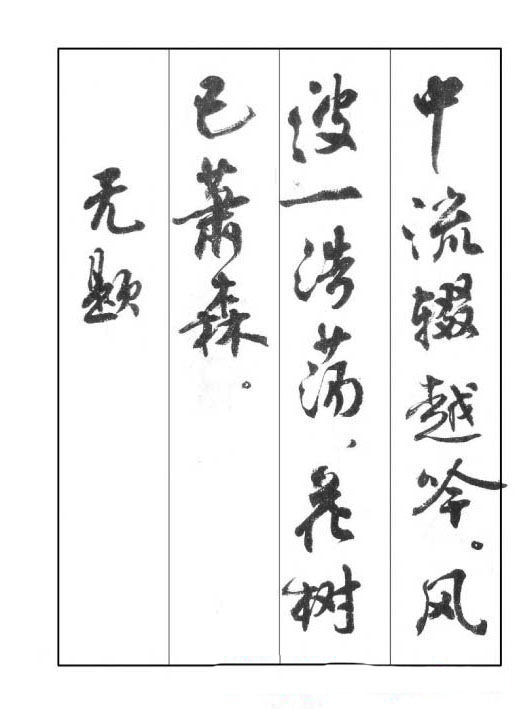 中流辍越吟。风
波一浩荡，花树
已萧森。
无题